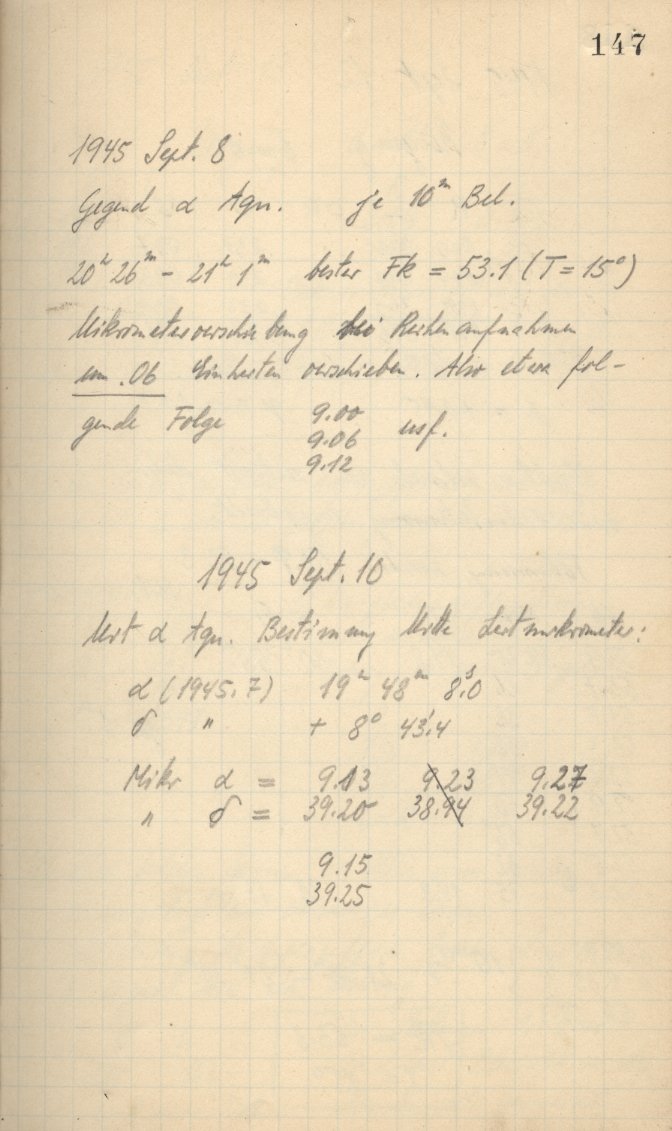 147
1945 Sept. 8
Gegend α Aqu. je 10ᵐ Bel.
20ʰ 26ᵐ - 21ʰ 1ᵐ bester Fk = 53.1 (T = 15°)
Mikrometerverschiebung bei Reihenaufnahmen
um .06 Einheiten verschieben. Also etwa fol-
gende Folge 9.00
9.06 usf.
9.12
1945 Sept. 10
Mit α Aqu. Bestimmung Mitte Leitmikrometer:
α (1945.7) 19ʰ 48ᵐ 8ˢ.0
δ " + 8° 43'.4
Mikr α = 9.13 9.23 9.27
" δ = 39.20 38.94 39.22
9.15
39.25